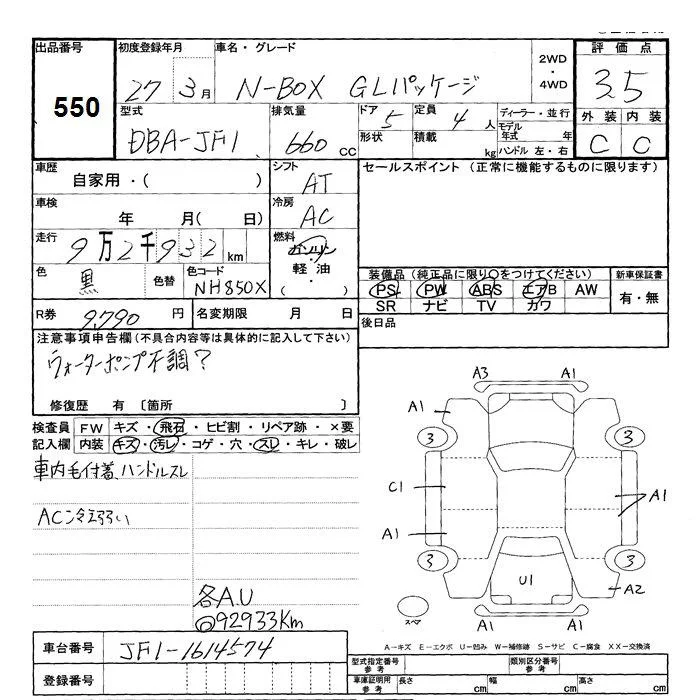 出品番号 初度登録年月 車名・グレード 2WD・4WD 評価点
550 27 3月 N-BOX GLパッケージ 3.5
型式 排気量 ドア 5 定員 4人 ディーラー・並行 外装 内装
DBA-JF1 660cc 形状 積載 kg モデル年式 年 C C
ハンドル 左・右
車歴 自家用・( ) シフト AT セールスポイント (正常に機能するものに限ります)
車検 年 月( 日) 冷房 AC
走行 9万2千932km 燃料 ガソリン・軽油・( )
色 黒 色替 色コード NH850X 装備品(純正品に限り○をつけてください) 新車保証書
PS PW ABS エアB AW 有・無
SR ナビ TV カワ
R券 9,790円 名変期限 月 日 後日品
注意事項申告欄(不具合内容等は具体的に記入して下さい)
ウォーターポンプ不調?
修復歴 有 〔箇所 〕
検査員 FW キズ・飛石・ヒビ割・リペア跡・×要
記入欄 内装 キズ・汚レ・コゲ・穴・スレ・キレ・破レ
車内毛付着、ハンドルスレ
AC冷え弱い
各A.U
◎92933Km
A3 A1
A1
3 3
C1 A1
A1
3 3
U1 A2
スペア A1 A1
A-キズ E-エクボ U-凹み W-補修跡 S-サビ C-腐食 XX-交換済
車台番号 JF1-1614574
登録番号
型式指定番号 参考 類別区分番号 参考
車庫証明用 参考 長さ cm 幅 cm 高さ cm